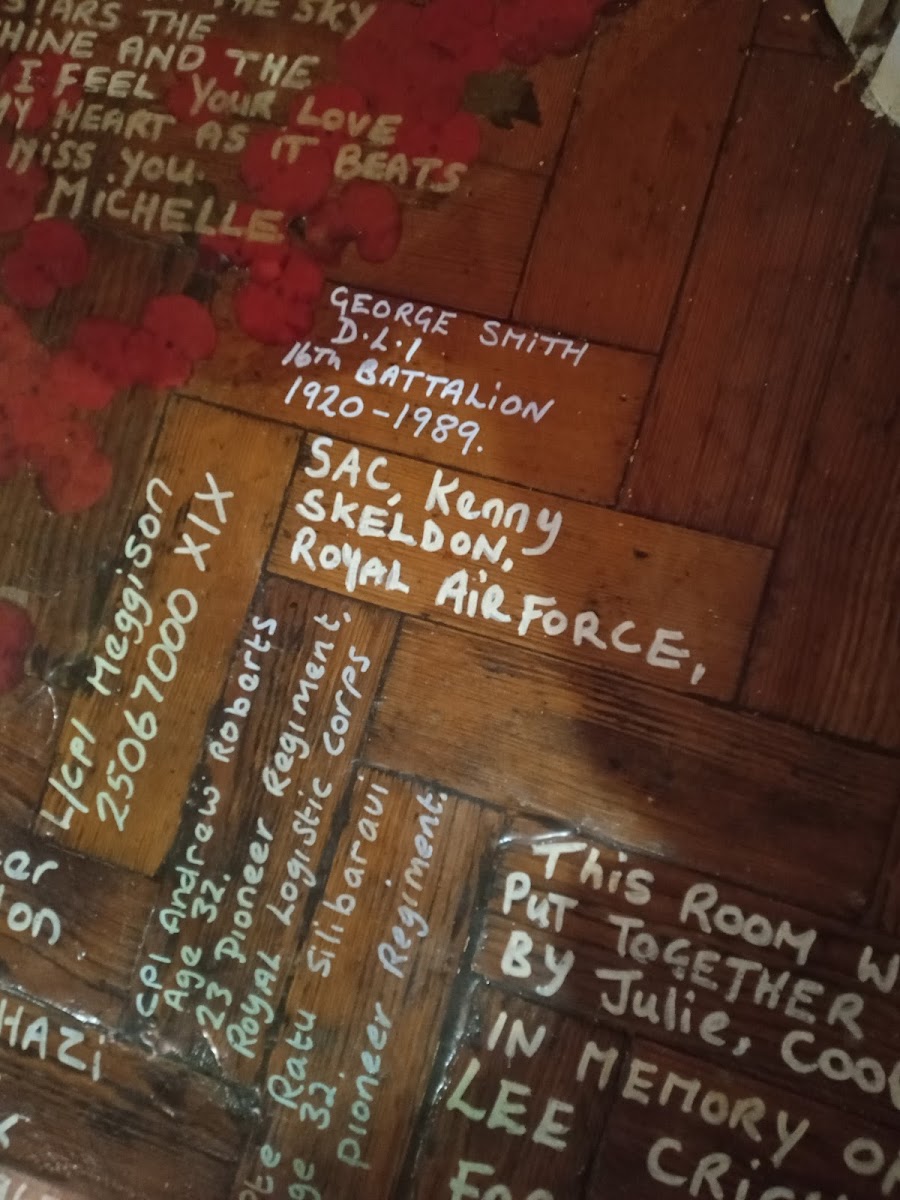 THE SKY
STARS THE
HINE AND THE
I FEEL YOUR LOVE
MY HEART AS IT BEATS
MISS YOU.
MICHELLE
GEORGE SMITH
D.L.I
16TH BATTALION
1920-1989.
SAC, Kenny
SKELDON,
ROYAL AIR FORCE,
L/CPl Meggison
25067000 XIX
CPl Andrew Roberts
Age 32.
23 Pioneer Regiment,
ROYAL Logistic Corps
Pte Ratu Silibaravi
ge 32.
Pioneer Regiment.
er
on
HAZi
This ROOM W
PUT TOGETHER
BY Julie, COO
IN MEMORY OF
LEE